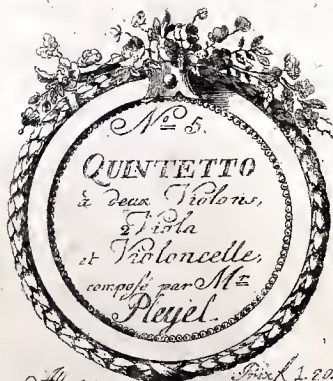 No 5.
QUINTETTO
à deux Violons,
2 Viola
et Violoncelle,
composé par Mr
Pleyel.
Prix f 1.20